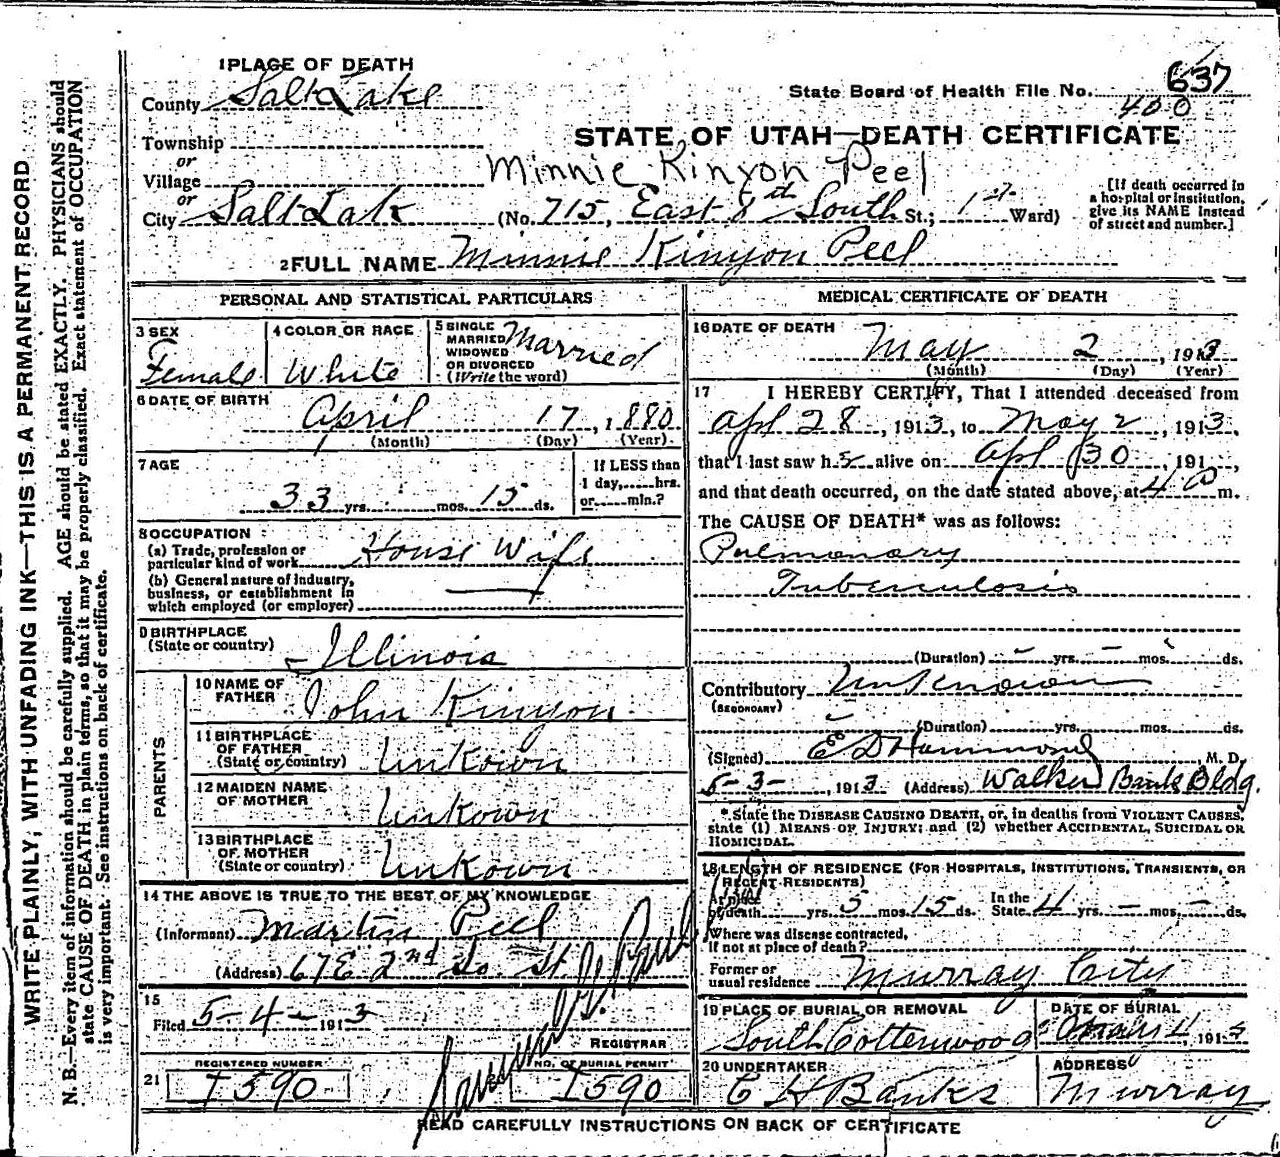 1 PLACE OF DEATH
County Salt Lake
State Board of Health File No. 637
400
Township
or
Village
or
STATE OF UTAH—DEATH CERTIFICATE
Minnie Kinyon Peel
City Salt Lake (No. 715, East 8th South St.; 1st Ward)
[If death occurred in
a hospital or institution,
give its NAME instead
of street and number.]
2 FULL NAME Minnie Kinyon Peel
PERSONAL AND STATISTICAL PARTICULARS
3 SEX
Female
4 COLOR OR RACE
White
5 SINGLE
MARRIED
WIDOWED
OR DIVORCED
(Write the word)
Married
6 DATE OF BIRTH
April 17, 1880
(Month) (Day) (Year)
7 AGE
33 yrs. mos. 15 ds.
If LESS than
1 day, hrs.
or min.?
8 OCCUPATION
(a) Trade, profession or
particular kind of work House Wife
(b) General nature of industry,
business, or establishment in
which employed (or employer)
9 BIRTHPLACE
(State or country) Illinois
PARENTS
10 NAME OF
FATHER John Kinyon
11 BIRTHPLACE
OF FATHER
(State or country) Unkown
12 MAIDEN NAME
OF MOTHER Unkown
13 BIRTHPLACE
OF MOTHER
(State or country) Unkown
14 THE ABOVE IS TRUE TO THE BEST OF MY KNOWLEDGE
(Informant) Martin Peel
(Address) 67 E 2nd So St
15
Filed 5-4- 1913
REGISTRAR
REGISTERED NUMBER
NO. OF BURIAL PERMIT
21 I590 I590
MEDICAL CERTIFICATE OF DEATH
16 DATE OF DEATH
May 2, 1913
(Month) (Day) (Year)
17 I HEREBY CERTIFY, That I attended deceased from
Apl 28, 1913, to May 2, 1913,
that I last saw h alive on Apl 30, 191 ,
and that death occurred, on the date stated above, at 4 a m.
The CAUSE OF DEATH* was as follows:
Pulmonary
Tuberculosis
(Duration) - yrs. - mos. - ds.
Contributory Unknown
(SECONDARY)
(Duration) yrs. mos. ds.
(Signed) E D Hammond M. D.
5-3-, 1913 (Address) Walker Bank Bldg.
* State the DISEASE CAUSING DEATH, or, in deaths from VIOLENT CAUSES,
state (1) MEANS OF INJURY; and (2) whether ACCIDENTAL, SUICIDAL OR
HOMICIDAL.
18 LENGTH OF RESIDENCE (FOR HOSPITALS, INSTITUTIONS, TRANSIENTS, OR
RECENT RESIDENTS)
At place
of death yrs. 3 mos. 15 ds. In the
State 4 yrs. - mos. - ds.
Where was disease contracted,
if not at place of death?
Former or
usual residence Murray City
19 PLACE OF BURIAL OR REMOVAL
South Cottonwood
DATE OF BURIAL
May 4 1913
20 UNDERTAKER
C H Banks
ADDRESS
Murray
READ CAREFULLY INSTRUCTIONS ON BACK OF CERTIFICATE
WRITE PLAINLY, WITH UNFADING INK—THIS IS A PERMANENT RECORD
N. B.—Every item of information should be carefully supplied. AGE should be stated EXACTLY. PHYSICIANS should
state CAUSE OF DEATH in plain terms, so that it may be properly classified. Exact statement of OCCUPATION
is very important. See instructions on back of certificate.